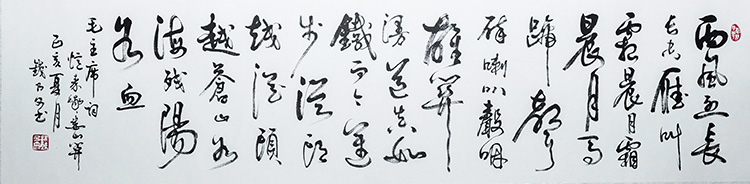 西風烈長
空雁叫
霜晨月霜
晨月馬
蹄聲
碎喇叭聲咽
雄關
漫道真如
鐵而今邁
步從頭
越從頭
越蒼山如
海殘陽
如血
毛主席詞
憶秦娥婁山關
己亥夏月